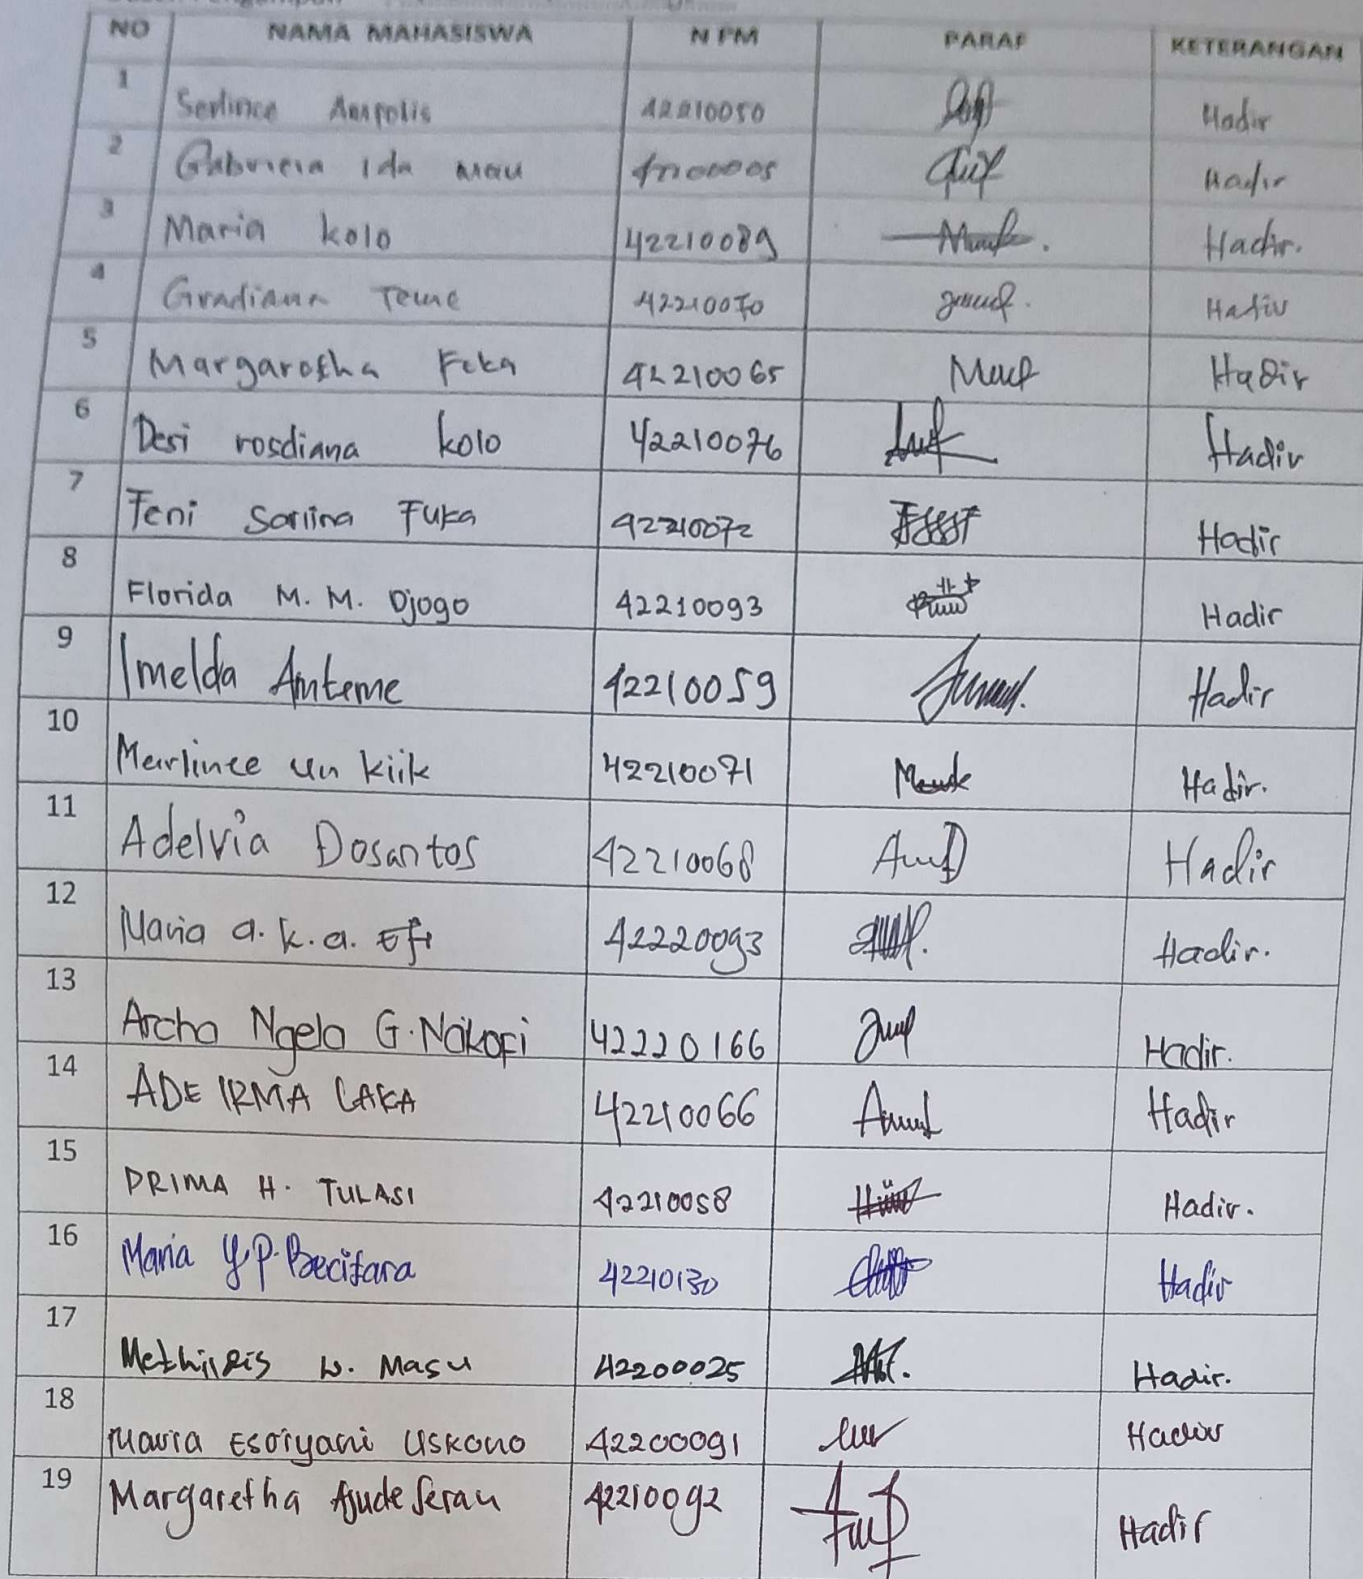 NO NAMA MAHASISWA NPM PARAF KETERANGAN
1 Serlince 42210050 Hadir
2 Gabriela Ida Mau Hadir
3 Maria kolo 42210089 Hadir.
4 Gradiana Teme 42210070 Hadir
5 Margaretha Feka 42210065 Hadir
6 Desi rosdiana kolo 42210076 Hadir
7 Feni Sarlina Fuka 42210072 Hadir
8 Florida M. M. Djogo 42210093 Hadir
9 Imelda Amteme 42210059 Hadir
10 Marlince un kiik 42210071 Hadir.
11 Adelvia Dosantos 42210068 Hadir
12 Maria a. k. a. Efi 42220093 Hadir.
13 Archa Ngela G. Naikofi 42220166 Hadir.
14 ADE IRMA LAKA 42210066 Hadir
15 PRIMA H. TULASI 42210058 Hadir.
16 Maria Y.P. Becitara 42210130 Hadir
17 W. Masu 42200025 Hadir.
18 Maria Esoiyani Uskono 42200091 Hadir
19 Margaretha Ajude Serau 42210092 Hadir